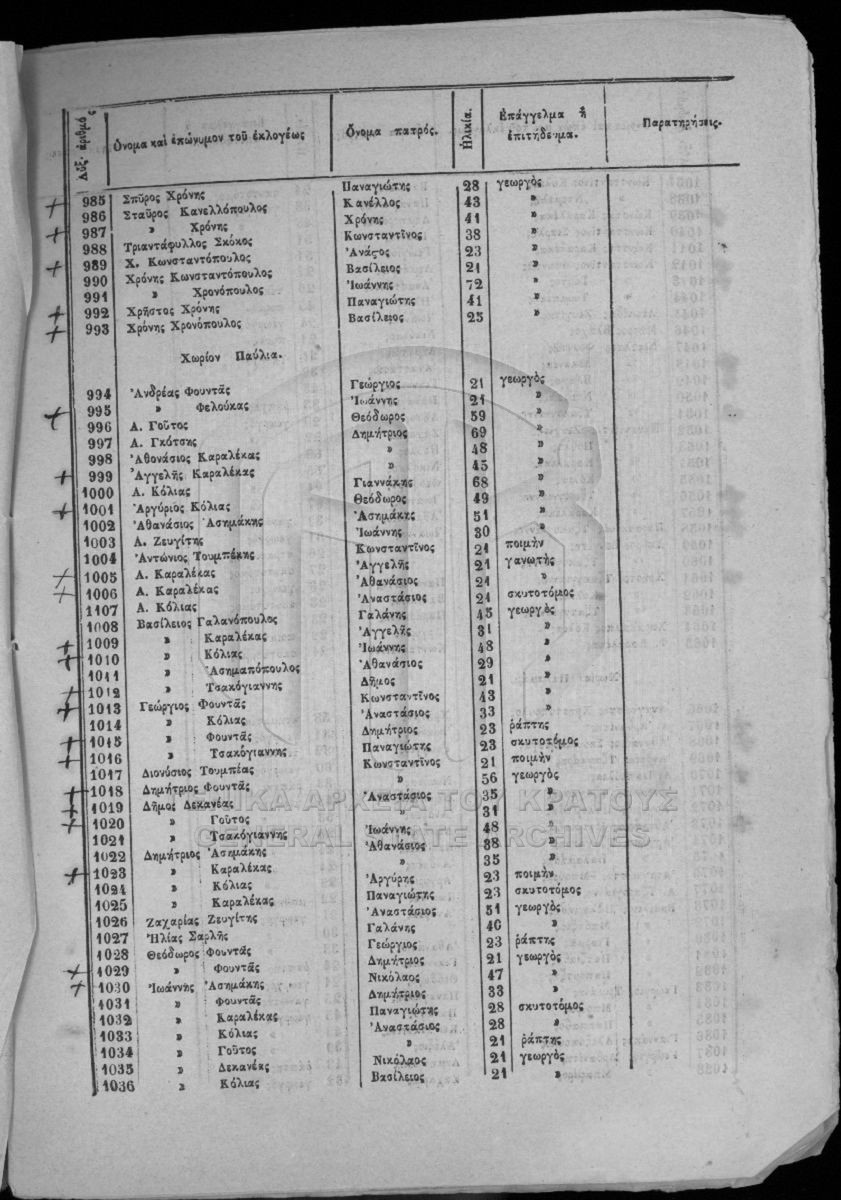 Αὔξ. ἀριθμὸς Ὄνομα καὶ ἐπώνυμον τοῦ ἐκλογέως Ὄνομα πατρός. Ἡλικία. Ἐπάγγελμα ἢ ἐπιτήδευμα. Παρατηρήσεις.
985 Σπῦρος Χρόνης Παναγιώτης 28 γεωργὸς
986 Σταῦρος Κανελλόπουλος Κανέλλος 43 »
987 » Χρόνης Χρόνης 41 »
988 Τριαντάφυλλος Σκόκος Κωνσταντῖνος 38 »
989 Χ. Κωνσταντόπουλος Ἀνάςος 23 »
990 Χρόνης Κωνσταντόπουλος Βασίλειος 21 »
991 » Χρονόπουλος Ἰωάννης 72 »
992 Χρῆστος Χρόνης Παναγιώτης 41 »
993 Χρόνης Χρονόπουλος Βασίλειος 25 »
Χωρίον Παύλια.
994 Ἀνδρέας Φουντᾶς Γεώργιος 21 γεωργὸς
995 » Φελούκας Ἰωάννης 21 »
996 Α. Γοῦτος Θεόδωρος 59 »
997 Α. Γκότσης Δημήτριος 69 »
998 Ἀθονάσιος Καραλέκας » 48 »
999 Ἀγγελῆς Καραλέκας » 45 »
1000 Α. Κόλιας Γιαννάκης 68 »
1001 Ἀργύριος Κόλιας Θεόδωρος 49 »
1002 Ἀθανάσιος Ἀσημάκης Ἀσημάκης 51 »
1003 Α. Ζευγίτης Ἰωάννης 30 »
1004 Ἀντώνιος Τουμπέκης Κωνσταντῖνος 21 ποιμὴν
1005 Α. Καραλέκας Ἀγγελῆς 21 γανωτὴς
1006 Α. Καραλέκας Ἀθανάσιος 21 »
1107 Α. Κόλιας Ἀναστάσιος 21 σκυτοτόμος
1008 Βασίλειος Γαλανόπουλος Γαλάνης 45 γεωργὸς
1009 » Καραλέκας Ἀγγελῆς 31 »
1010 » Κόλιας Ἰωάννης 48 »
1011 » Ἀσημαπόπουλος Ἀθανάσιος 29 »
1012 » Τσακόγιαννης Δῆμος 21 »
1013 Γεώργιος Φουντᾶς Κωνσταντῖνος 43 »
1014 » Κόλιας Ἀναστάσιος 33 »
1015 » Φουντᾶς Δημήτριος 23 ῥάπτης
1016 » Τσακόγιαννης Παναγιώτης 23 σκυτοτόμος
1017 Διονύσιος Τουμπέας Κωνσταντῖνος 21 ποιμὴν
1018 Δημήτριος Φουντᾶς » 56 γεωργὸς
1019 Δῆμος Δεκανέας Ἀναστάσιος 35 »
1020 » Γοῦτος » 31 »
1021 » Τσακόγιαννης Ἰωάννης 48 »
1022 Δημήτριος Ἀσημάκης Ἀθανάσιος 38 »
1023 » Καραλέκας » 35 »
1024 » Κόλιας Ἀργύρης 23 ποιμὴν
1025 » Καραλέκας Παναγιώτης 23 σκυτοτόμος
1026 Ζαχαρίας Ζευγίτης Ἀναστάσιος 51 γεωργὸς
1027 Ἠλίας Σαρλῆς Γαλάνης 40 »
1028 Θεόδωρος Φουντᾶς Γεώργιος 23 ῥάπτης
1029 » Φουντᾶς Δημήτριος 21 γεωργὸς
1030 Ἰωάννης Ἀσημάκης Νικόλαος 47 »
1031 » Φουντᾶς Δημήτριος 33 »
1032 » Καραλέκας Παναγιώτης 28 σκυτοτόμος
1033 » Κόλιας Ἀναστάσιος 28 »
1034 » Γοῦτος » 21 ῥάπτης
1035 » Δεκανέας Νικόλαος 21 γεωργὸς
1036 » Κόλιας Βασίλειος 21 »
ΓΕΝΙΚΑ ΑΡΧΕΙΑ ΤΟΥ ΚΡΑΤΟΥΣ
GENERAL STATE ARCHIVES